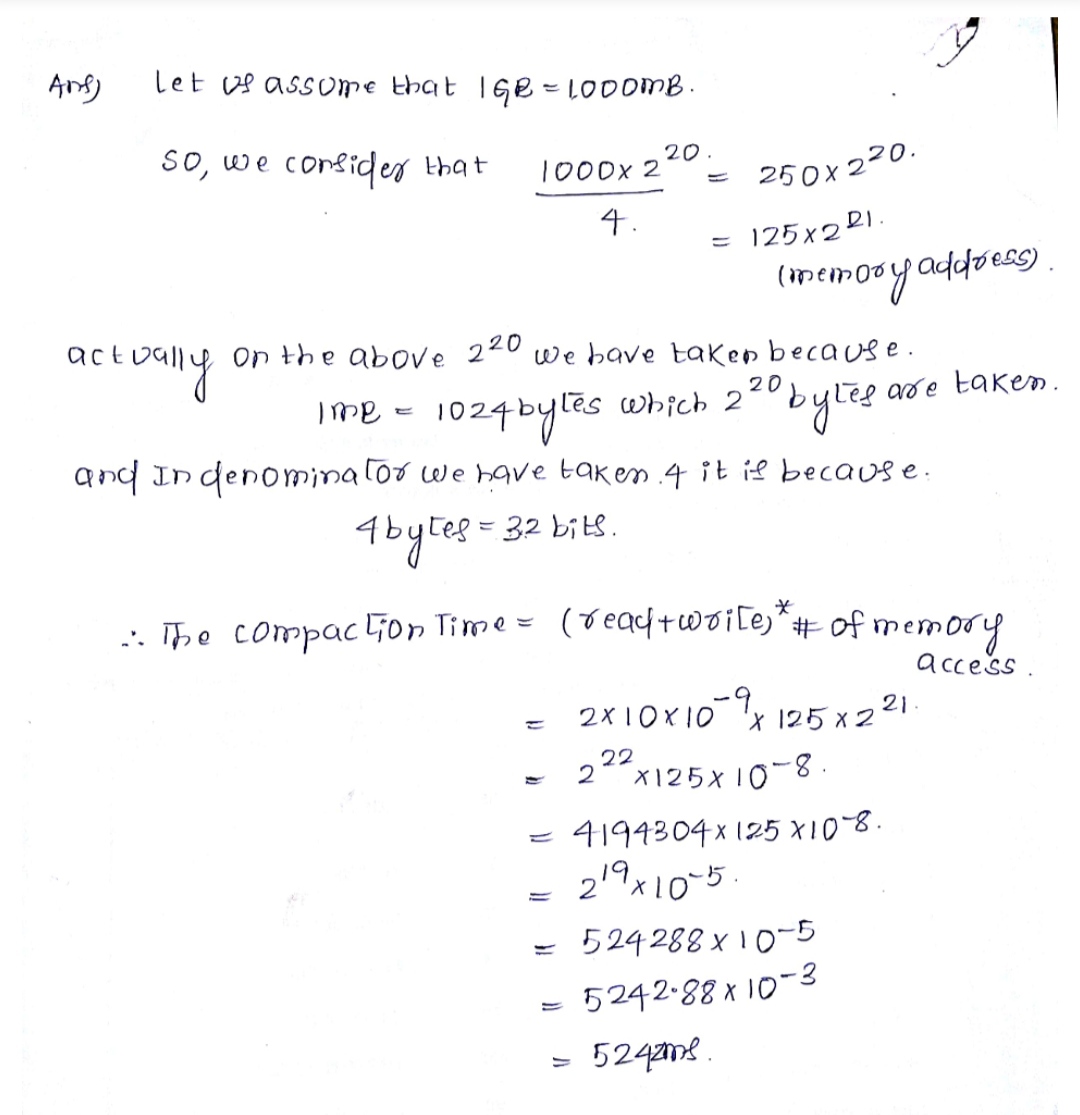 Ans) Let us assume that 1GB = 1000MB.
So, we consider that 1000 x 2^20 / 4. = 250 x 2^20.
= 125 x 2^21.
(memory address).
actually on the above 2^20 we have taken because.
1MB = 1024bytes which 2^20 bytes are taken.
and In denominator we have taken 4 it is because.
4bytes = 32 bits.
∴ The compaction Time = (read+write)*# of memory
access.
= 2x10x10^-9 x 125 x 2^21.
= 2^22 x125x10^-8.
= 4194304x125x10^-8.
= 2^19 x10^-5.
= 524288 x 10^-5
= 5242.88 x 10^-3
= 5242ms.